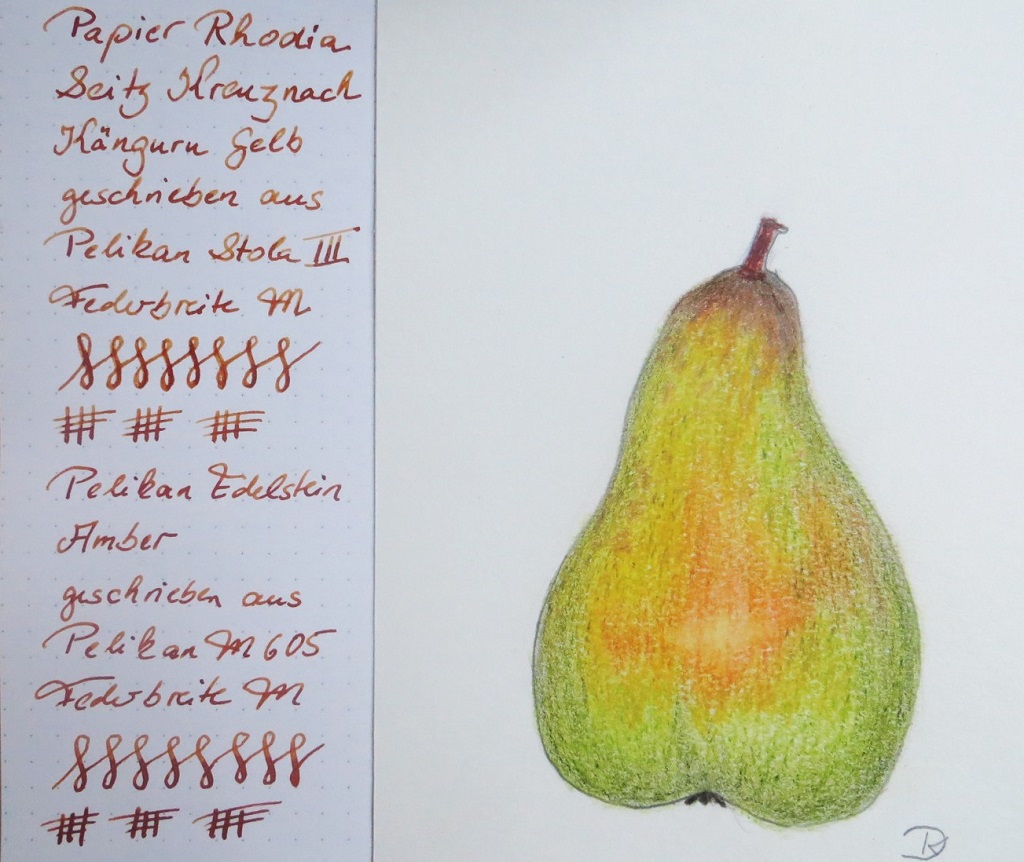 Papier Rhodia
Seitz Kreuznach
Känguru Gelb
geschrieben aus
Pelikan Stola III
Federbreite M
Pelikan Edelstein
Amber
geschrieben aus
Pelikan M605
Federbreite M